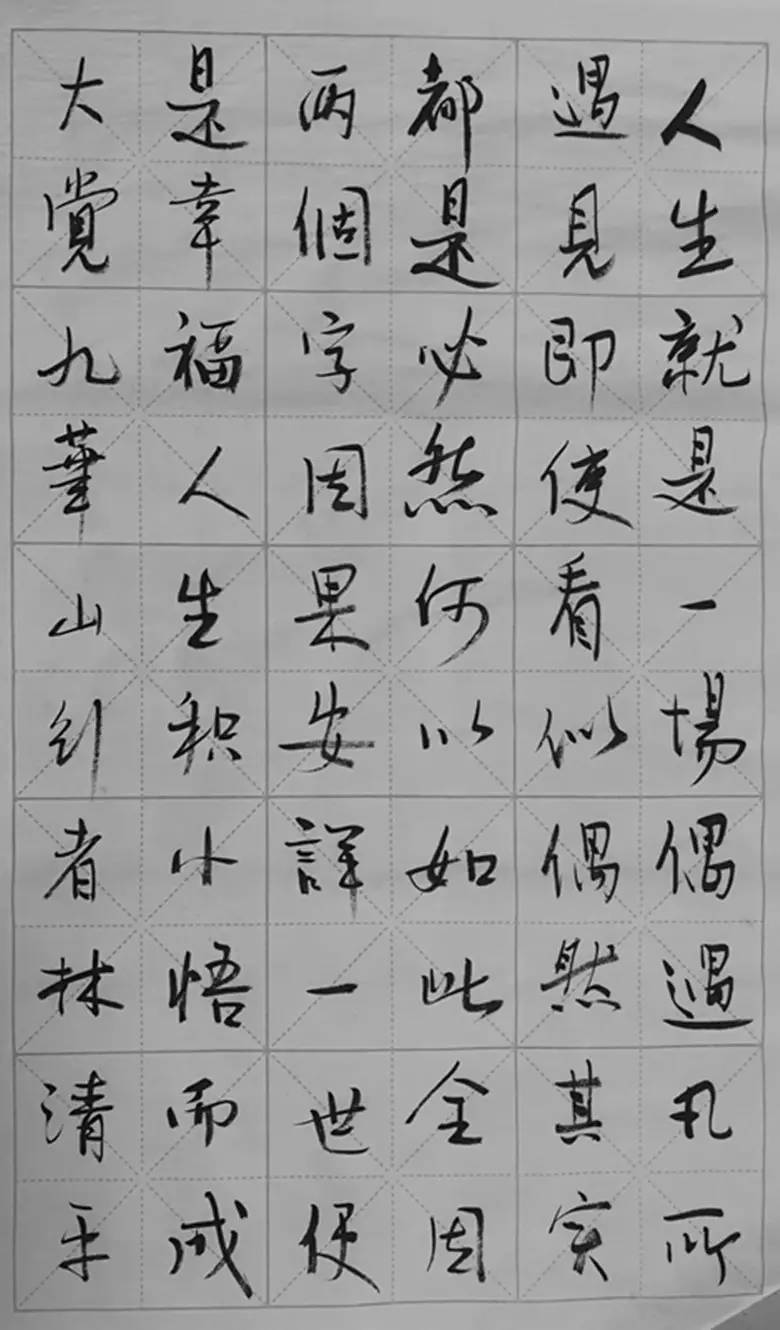 人生就是一場偶遇凡所
遇見即使看似偶然其实
都是必然何以如此全因
两個字因果安詳一世便
是幸福人生积小悟而成
大覺九華山行者林清平